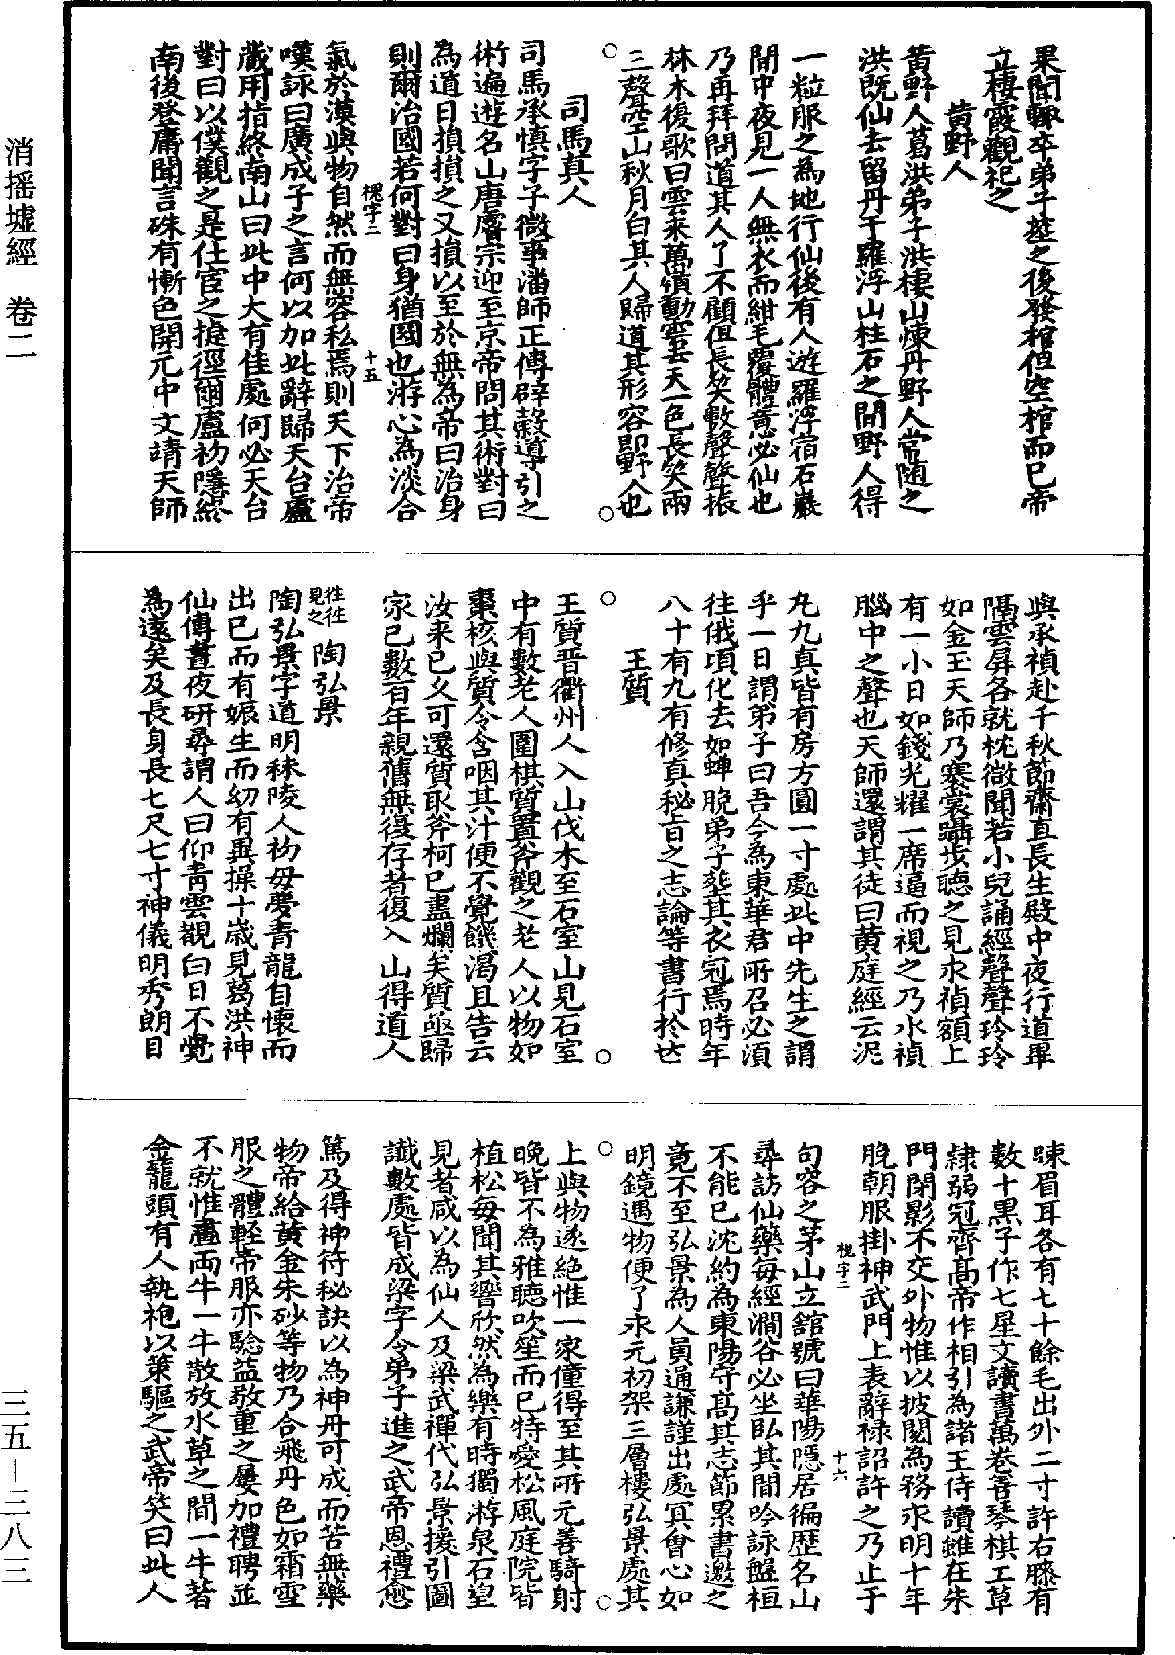 消搖墟經 卷二
果聞輒卒弟子塟之後發棺但空棺而已帝
立棲霞觀祀之
黃野人
黃野人葛洪弟子洪棲山煉丹野人常随之
洪既仙去留丹于羅浮山柱石之間野人得
一粒服之為地行仙後有人遊羅浮宿石巖
間中夜見一人無衣而紺毛覆體意必仙也
乃再拜問道其人了不顧但長笑數聲聲振
林木復歌曰雲來萬嶺動雲去天一色長笑兩
三聲空山秋月白其人歸道其形容即野人也
司馬真人
司馬承慎字子微事潘師正傳辟穀導引之
術遍遊名山唐睿宗迎至京帝問其術對曰
為道日損損之又損以至於無為帝曰治身
則爾治國若何對曰身猶國也游心為淡合
槐字二 十五
氣於漠與物自然而無容私焉則天下治帝
嘆詠曰廣成子之言何以加此辭歸天台盧
藏用指終南山曰此中大有佳處何必天台
對曰以僕觀之是仕宦之捷徑爾盧初隱終
南後登庸聞言殊有慚色開元中文靖天師
與承禎赴千秋節齋直長生殿中夜行道畢
隔雲屏各就枕微聞若小兒誦經聲聲玲玲
如金玉天師乃褰裳躡步聽之見承禎額上
有一小日如錢光耀一席逼而視之乃承禎
腦中之聲也天師還謂其徒曰黃庭經云泥
丸九真皆有房方圓一寸處此中先生之謂
乎一日謂弟子曰吾今為東華君所召必須
往俄頃化去如蟬脫弟子塟其衣冠焉時年
八十有九有修真秘旨之志論等書行於世
王質
王質晉衢州人入山伐木至石室山見石室
中有數老人圍棋質置斧觀之老人以物如
棗核與質令含咽其汁便不覺饑渴且告云
汝来已久可還質取斧柯已盡爛矣質亟歸
家已數百年親舊無復存者復入山得道人
往往見之
陶弘景
陶弘景字道明秣陵人初母夢青龍自懷而
出已而有娠生而幼有異操十歲見葛洪神
仙傳晝夜研尋謂人曰仰青雲覩白日不覺
為遠矣及長身長七尺七寸神儀明秀朗目
疎眉耳各有七十餘毛出外二寸許右膝有
數十黑子作七星文讀書萬卷善琴棋工草
隸弱冠齊高帝作相引為諸王侍讀雖在朱
門閉影不交外物惟以披閱為務永明十年
脫朝服掛神武門上表辭禄詔許之乃止于
槐字二 十六
句容之茅山立舘號曰華陽隱居徧歷名山
尋訪仙藥每經澗谷必坐臥其間吟詠盤桓
不能已沈約為東陽守高其志節累書邀之
竟不至弘景為人員通謙謹出處冥會心如
明鏡遇物便了永元初架三層樓弘景處其
上與物遂絶惟一家僮得至其所元善騎射
晚皆不為雅聽吹笙而已特愛松風庭院皆
植松每聞其響欣然為樂有時獨游泉石望
見者咸以為仙人及梁武禪代弘景援引圖
讖數處皆成梁字令弟子進之武帝恩禮愈
篤及得神符秘訣以為神丹可成而苦無藥
物帝給黃金朱砂等物乃合飛丹色如霜雪
服之體輕帝服亦驗益敬重之屢加禮聘並
不就惟畫兩牛一牛散放水草之間一牛著
金籠頭有人執袍以策驅之武帝笑曰此人
三五—三八三